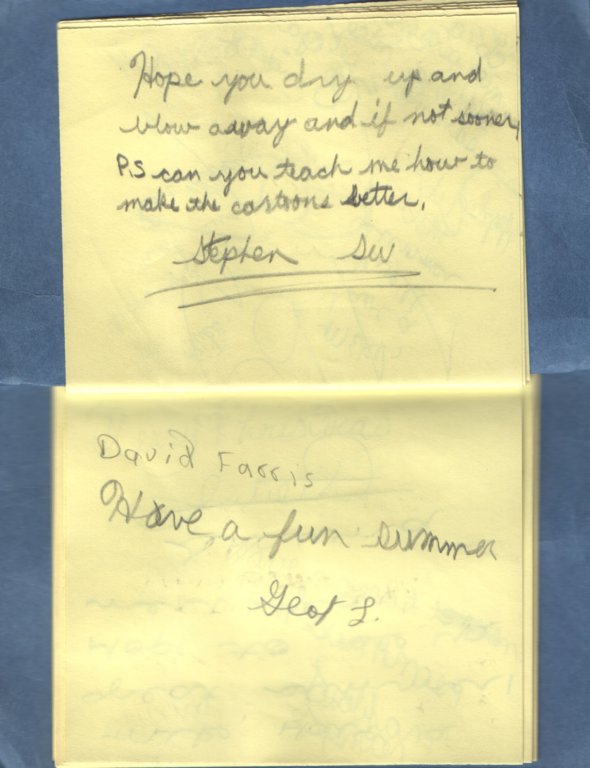 Hope you dry up and
blow away and if not sooner,
P.S can you teach me how to
make the cartoons better.
Stephen
David Farris
Have a fun summer
Geof L.